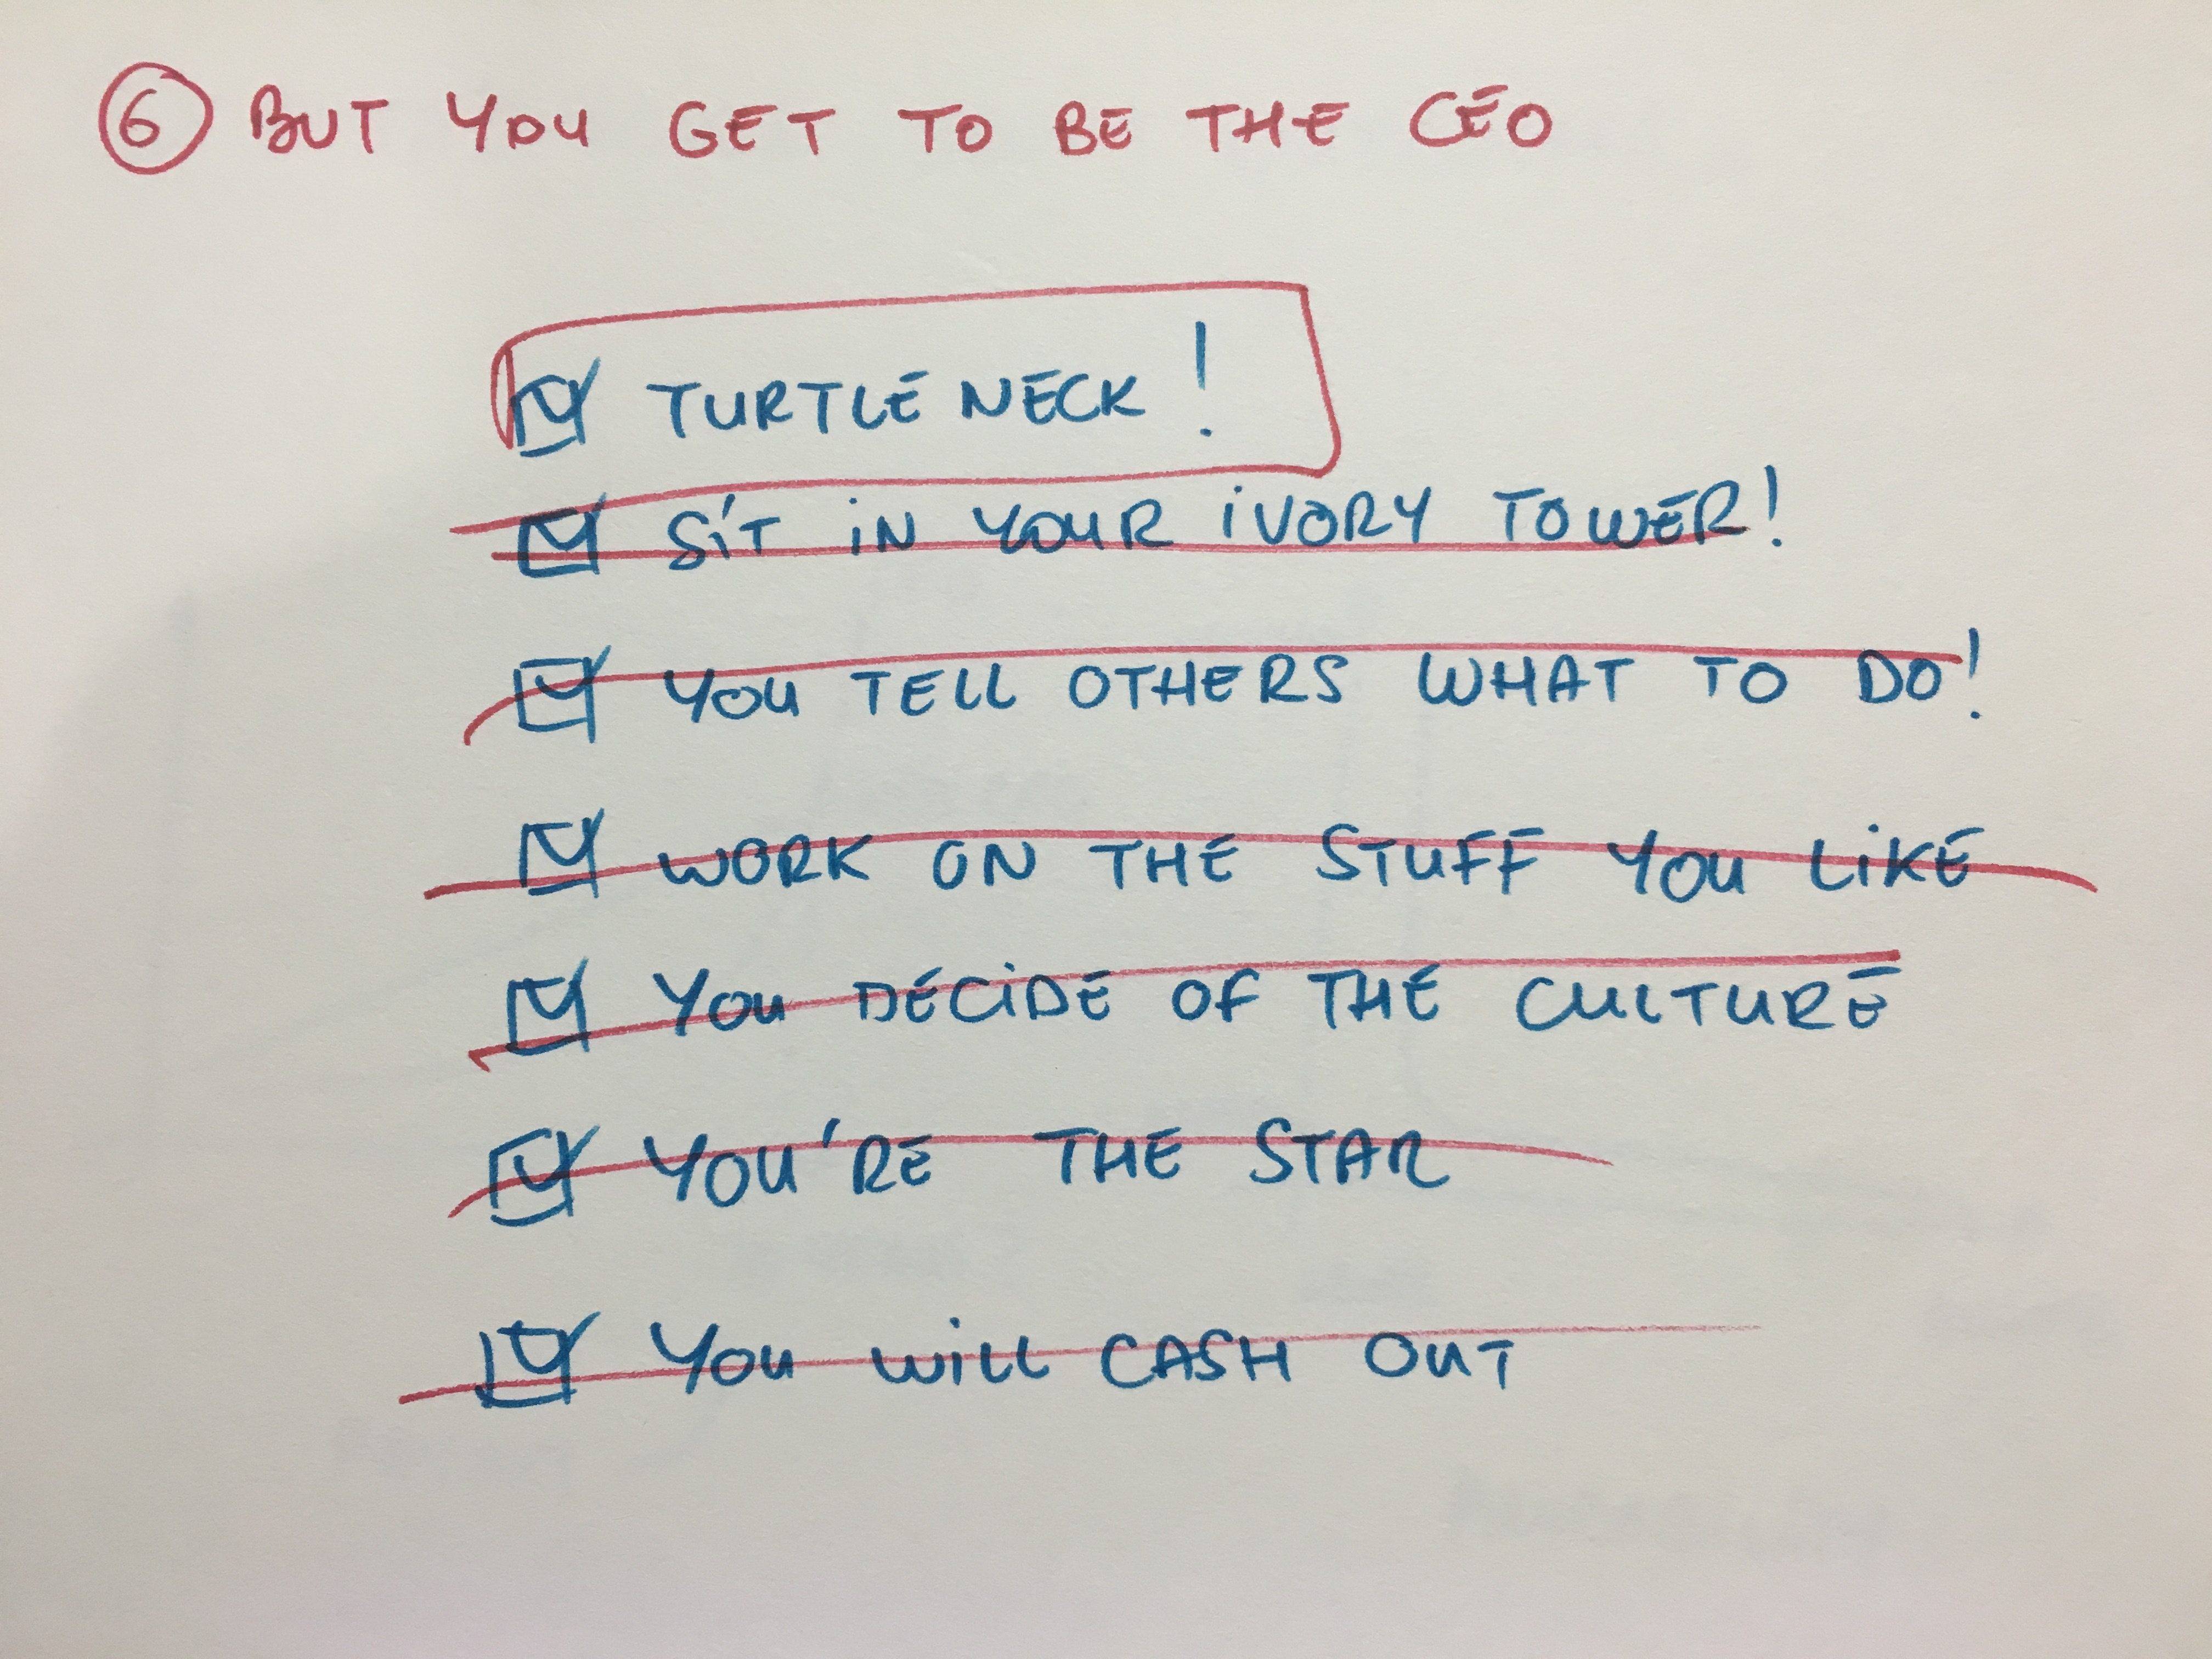 6 BUT YOU GET TO BE THE CEO
TURTLENECK!
SIT IN YOUR IVORY TOWER!
YOU TELL OTHERS WHAT TO DO!
WORK ON THE STUFF YOU LIKE
YOU DECIDE OF THE CULTURE
YOU'RE THE STAR
YOU WILL CASH OUT